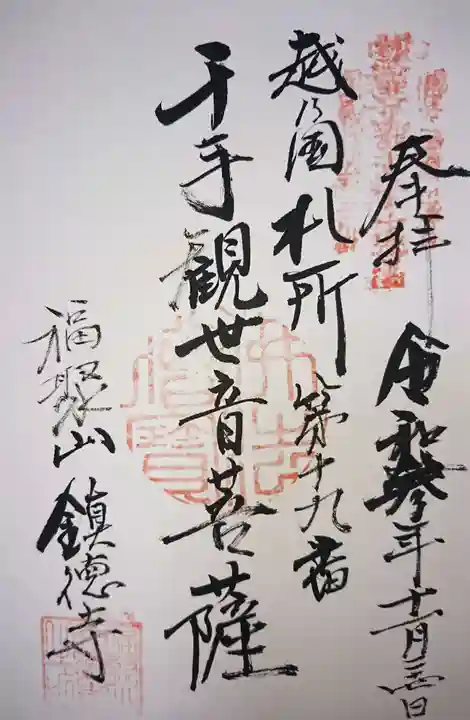 奉拝
令和参年十一月三日
越国札所第十九番
千手観世音菩薩
福聚山鎮徳寺